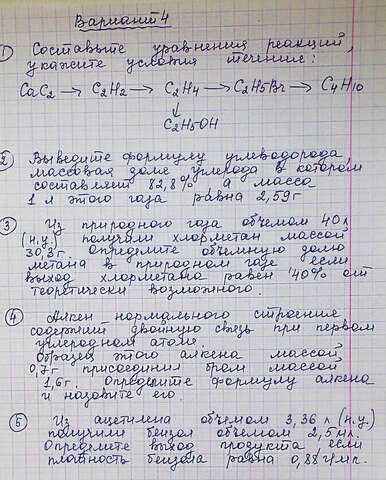 Вариант 4
① Составьте уравнения реакций,
укажите условия течения:
CaC₂ → C₂H₂ → C₂H₄ → C₂H₅Br → C₄H₁₀
↓
C₂H₅OH
2 Выведите формулу углеводорода,
массовая доля углерода в котором
составляет 82,8% а масса
1 л этого газа равна 2,59г
③ Из природного газа объемом 40л
(н.у.) получили хлорметан массой
30,3г. Определите объемную долю
метана в природном газе если
выход хлорметана равен 40% от
теоретически возможного.
④ Алкен нормального строения
содержит двойную связь при первом
углеродном атоме.
Образец этого алкена массой
0,7г присоединил бром массой
1,6г. Определите формулу алкена
и назовите его.
⑤ Из ацетилена объемом 3,36 л (н.у.)
получили бензол объемом 2,5мл.
Определите выход продукта, если
плотность бензола равна 0,88г/мл.